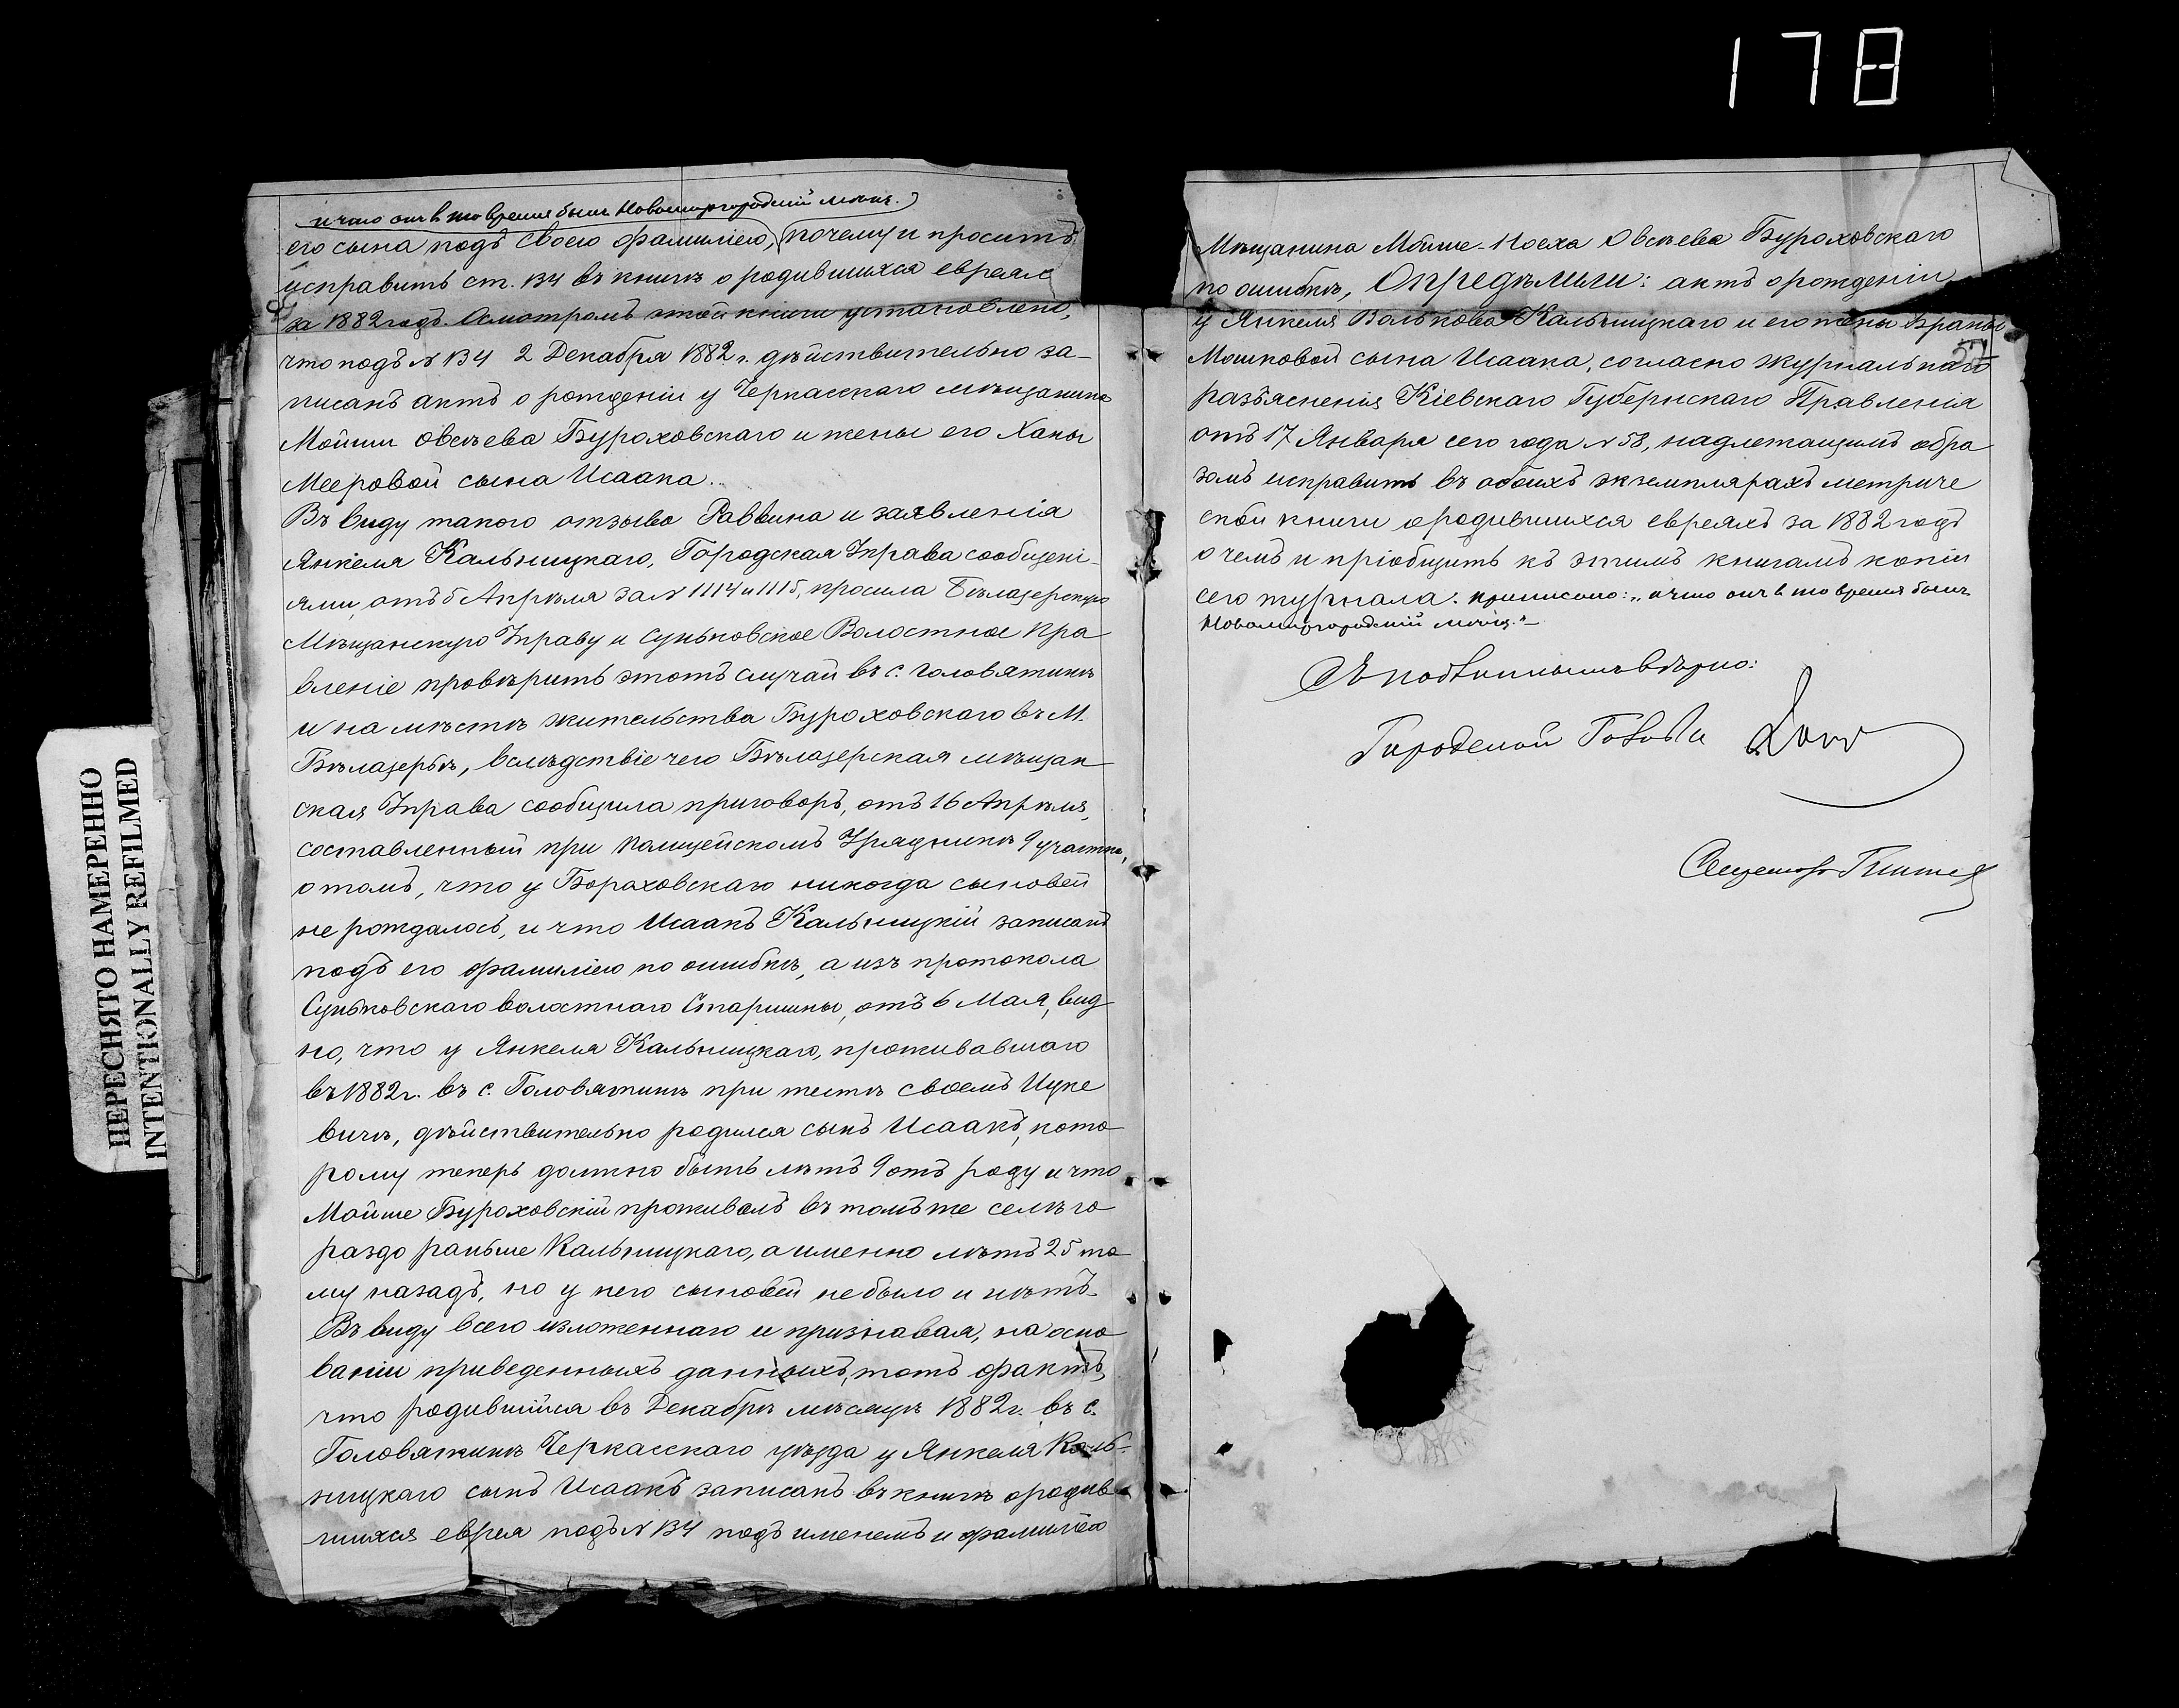 178
и что онъ в то время былъ Новомиргородскій мѣщ.
его сына подъ своею фамиліею, почему и проситъ
исправить ст. 134 въ книгѣ о родившихся евреях
за 1882 годъ. Осмотромъ этой книги установлено,
что подъ № 134 2 Декабря 1882 г. дѣйствительно за-
писанъ актъ о рожденіи у Черкасскаго мѣщанина
Мойши Овсѣева Бурохoвскаго и жены его Ханы
Мееровой сына Исаака.
Въ виду такого отзыва Раввина и заявленія
Янкеля Кальницкаго, Городская Управа сообщені-
ями, отъ 5 Апрѣля за № 1114 и 1115, просила Бѣлазерскую
Мѣщанскую Управу и Суньковское Волостное Пра
вленіе провѣрить этотъ случай въ с. Головятинѣ
и на мѣстѣ жительства Буроховскаго въ М.
Бѣлазерьѣ, вслѣдствіе чего Бѣлазерская мѣщан
ская Управа сообщила приговоръ, отъ 16 Апрѣля,
составленный при Полицейскомъ Урядникѣ 9 участка,
о томъ, что у Бораховскаго никогда сыновей
не рождалось, и что Исаакъ Кальницкій записанъ
подъ его фамиліею по ошибкѣ, а изъ протокола
Суньковскаго волостнаго Старшины, отъ 6 Мая, вид
но, что у Янкеля Кальницкаго, проживавшаго
въ 1882 г. въ с. Головятинѣ при тестѣ своемъ Ицке
вичѣ, дѣйствительно родился сынъ Исаакъ, кото
рому теперь должно быть лѣтъ 9 отъ роду и что
Мойше Буроховскій проживалъ въ томъ же селѣ го
раздо раньше Кальницкаго, а именно лѣтъ 25 то
му назадъ, но у него сыновей не было и нѣтъ.
Въ виду всего изложеннаго и признавая, на осно
ваніи приведенныхъ данныхъ, тотъ фактъ,
что родившійся въ Декабрѣ мѣсяцѣ 1882 г. въ с.
Головятинѣ Черкасскаго уѣзда у Янкеля Каль-
ницкаго сынъ Исаакъ записанъ въ книгѣ о родив
шихся еврея подъ № 134 подъ именемъ и фамиліею
Мѣщанина Мойше-Иосеха Овсѣева Буроховскаго
по ошибкѣ, Опредѣлили: актъ о рожденіи
у Янкеля Волькова Кальницкаго и его жены Браны
Мошковой сына Исаака, согласно журнальнаго
разъясненія Кіевскаго Губернскаго Правленія
отъ 17 Января сего года № 58, надлежащимъ обра
зомъ исправить въ обоихъ экземплярахъ метриче
ской книги о родившихся евреяхъ за 1882 годъ
о чемъ и пріобщить къ этимъ книгамъ копіи
сего журнала. приписано: „и что онъ в то время былъ
Новомиргородскій мѣщ."
Съ подлиннымъ вѣрно:
Городской Голова
Секретарь
ПЕРЕСНЯТО НАМЕРЕННО
INTENTIONALLY REFILMED